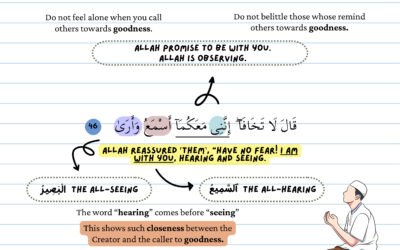 Do not feel alone when you call
others towards goodness.
Do not belittle those whose remind
others towards goodness.
ALLAH PROMISE TO BE WITH YOU.
ALLAH IS OBSERVING.
قَالَ لَا تَخَافَآ ۖ إِنَّنِى مَعَكُمَآ أَسْمَعُ وَأَرَىٰ 46
ALLAH REASSURED 'THEM', "HAVE NO FEAR! I AM
WITH YOU, HEARING AND SEEING.
الْبَصِيرُ THE ALL-SEEING
ٱلسَّمِيعُ THE ALL-HEARING
The word "hearing" comes before "seeing"
This shows such closeness between the
Creator and the caller to goodness.